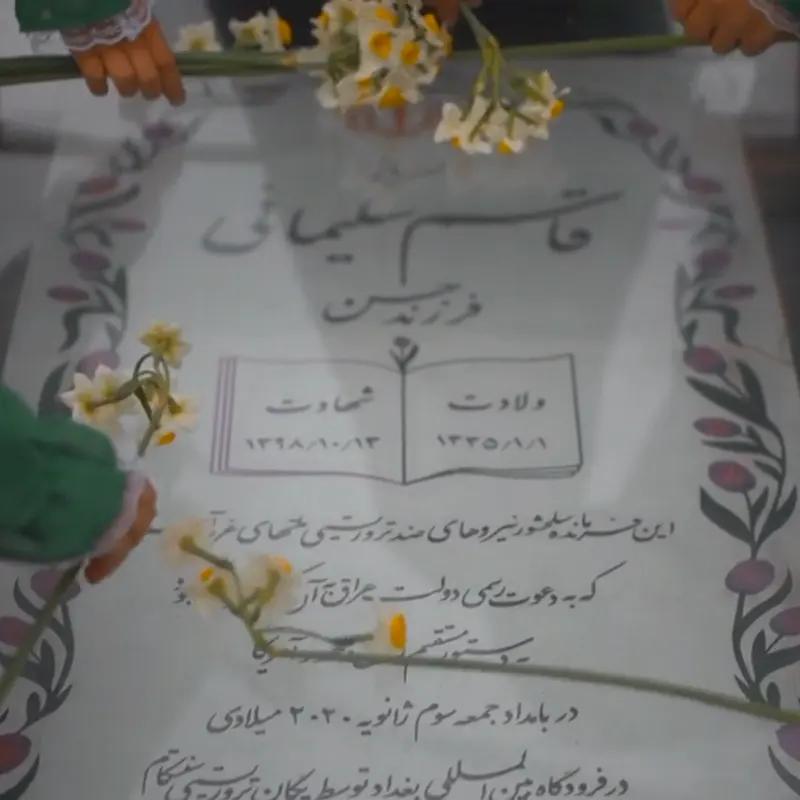 قاسم سلیمانی
فرزند حسن
ولادت
۱۳۳۵/۱/۱
شهادت
۱۳۹۸/۱۰/۱۳
این فرمانده سلحشور نیروهای ضد تروریستی
که به دعوت رسمی دولت عراق به آن
به دستور مستقیم
در بامداد جمعه سوم ژانویه ۲۰۲۰ میلادی
در فرودگاه بین المللی بغداد توسط یگان تروریستی سنتکام